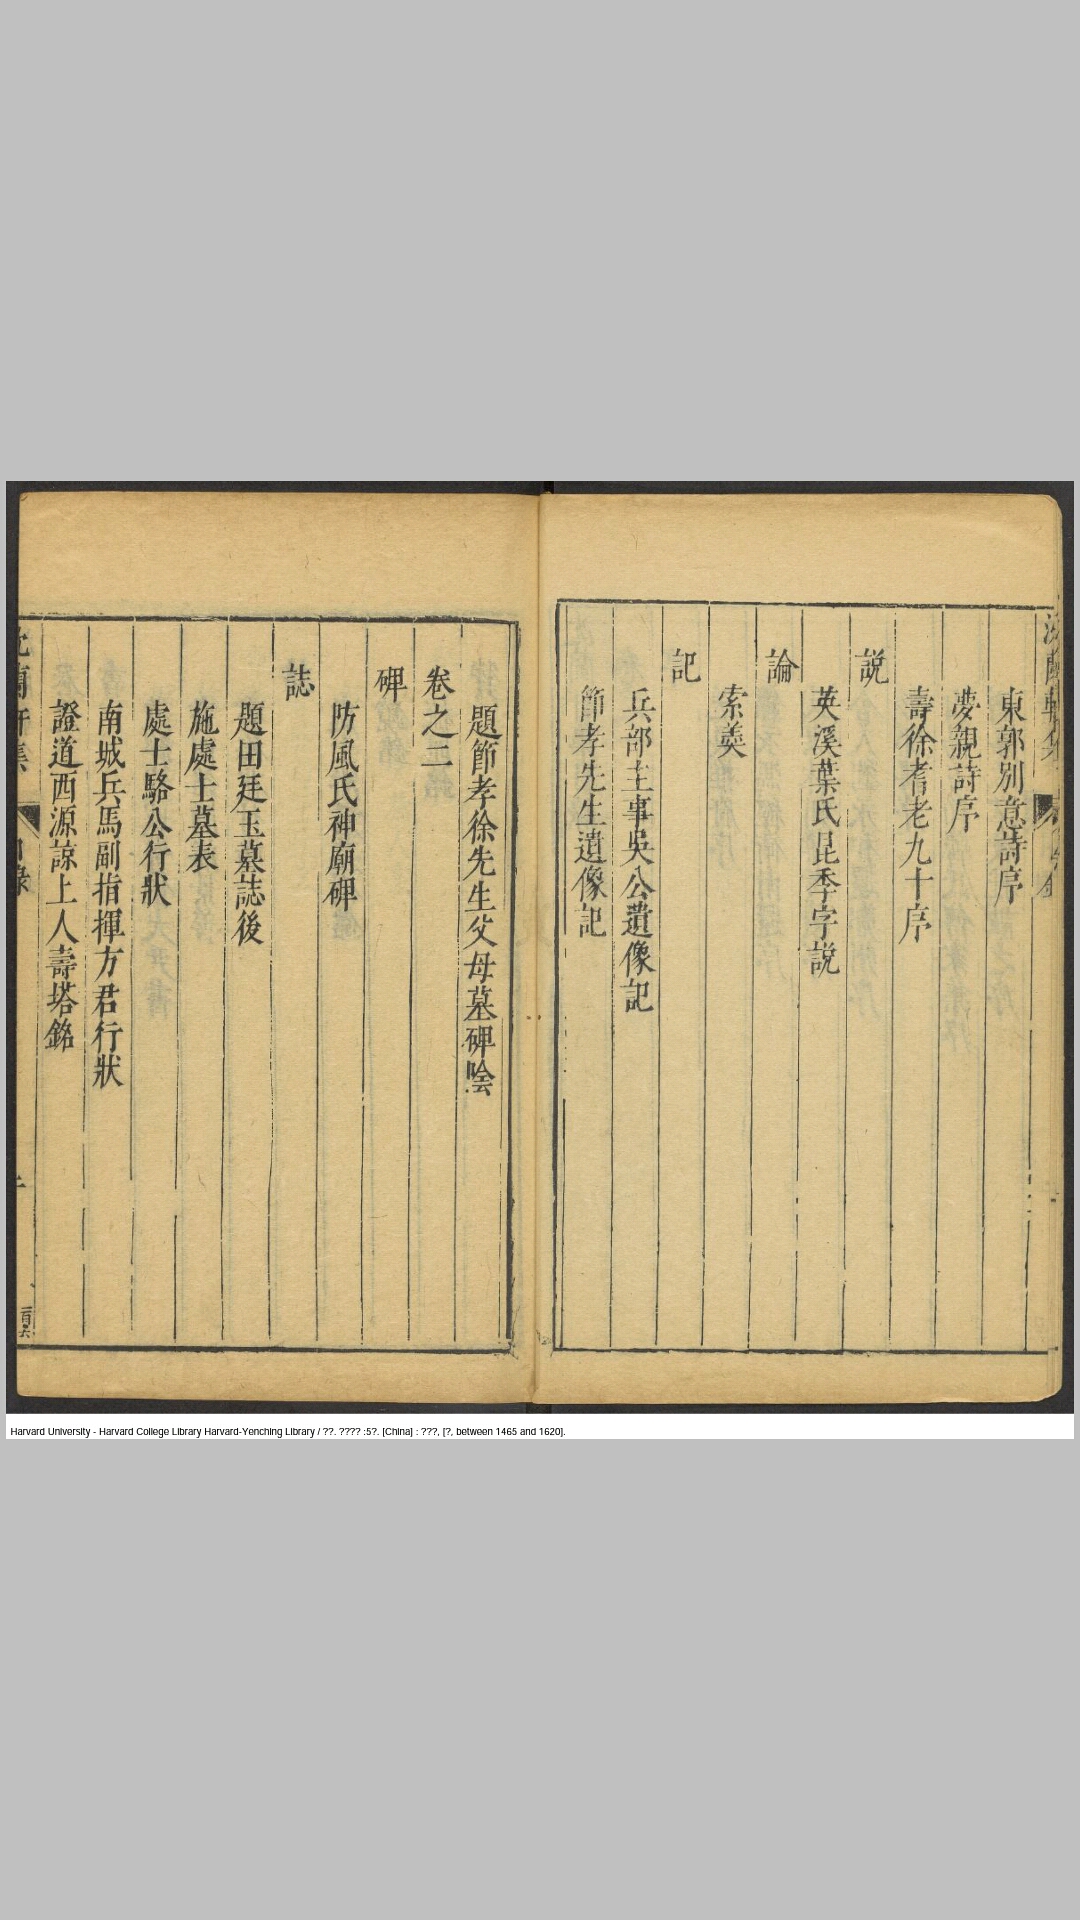 東郭別意詩序
夢親詩序
壽徐耆老九十序
說
英溪葉氏昆季字說
論
索羮
記
兵部主事吳公遺像記
節孝先生遺像記
題節孝徐先生父母墓碑陰
卷之二
碑
防風氏神廟碑
誌
題田廷玉墓誌後
施處士墓表
處士駱公行狀
南城兵馬副指揮方君行狀
證道西源諒上人壽塔銘
Harvard University - Harvard College Library Harvard-Yenching Library / ??. ???? :5?. [China] : ???, [?, between 1465 and 1620].